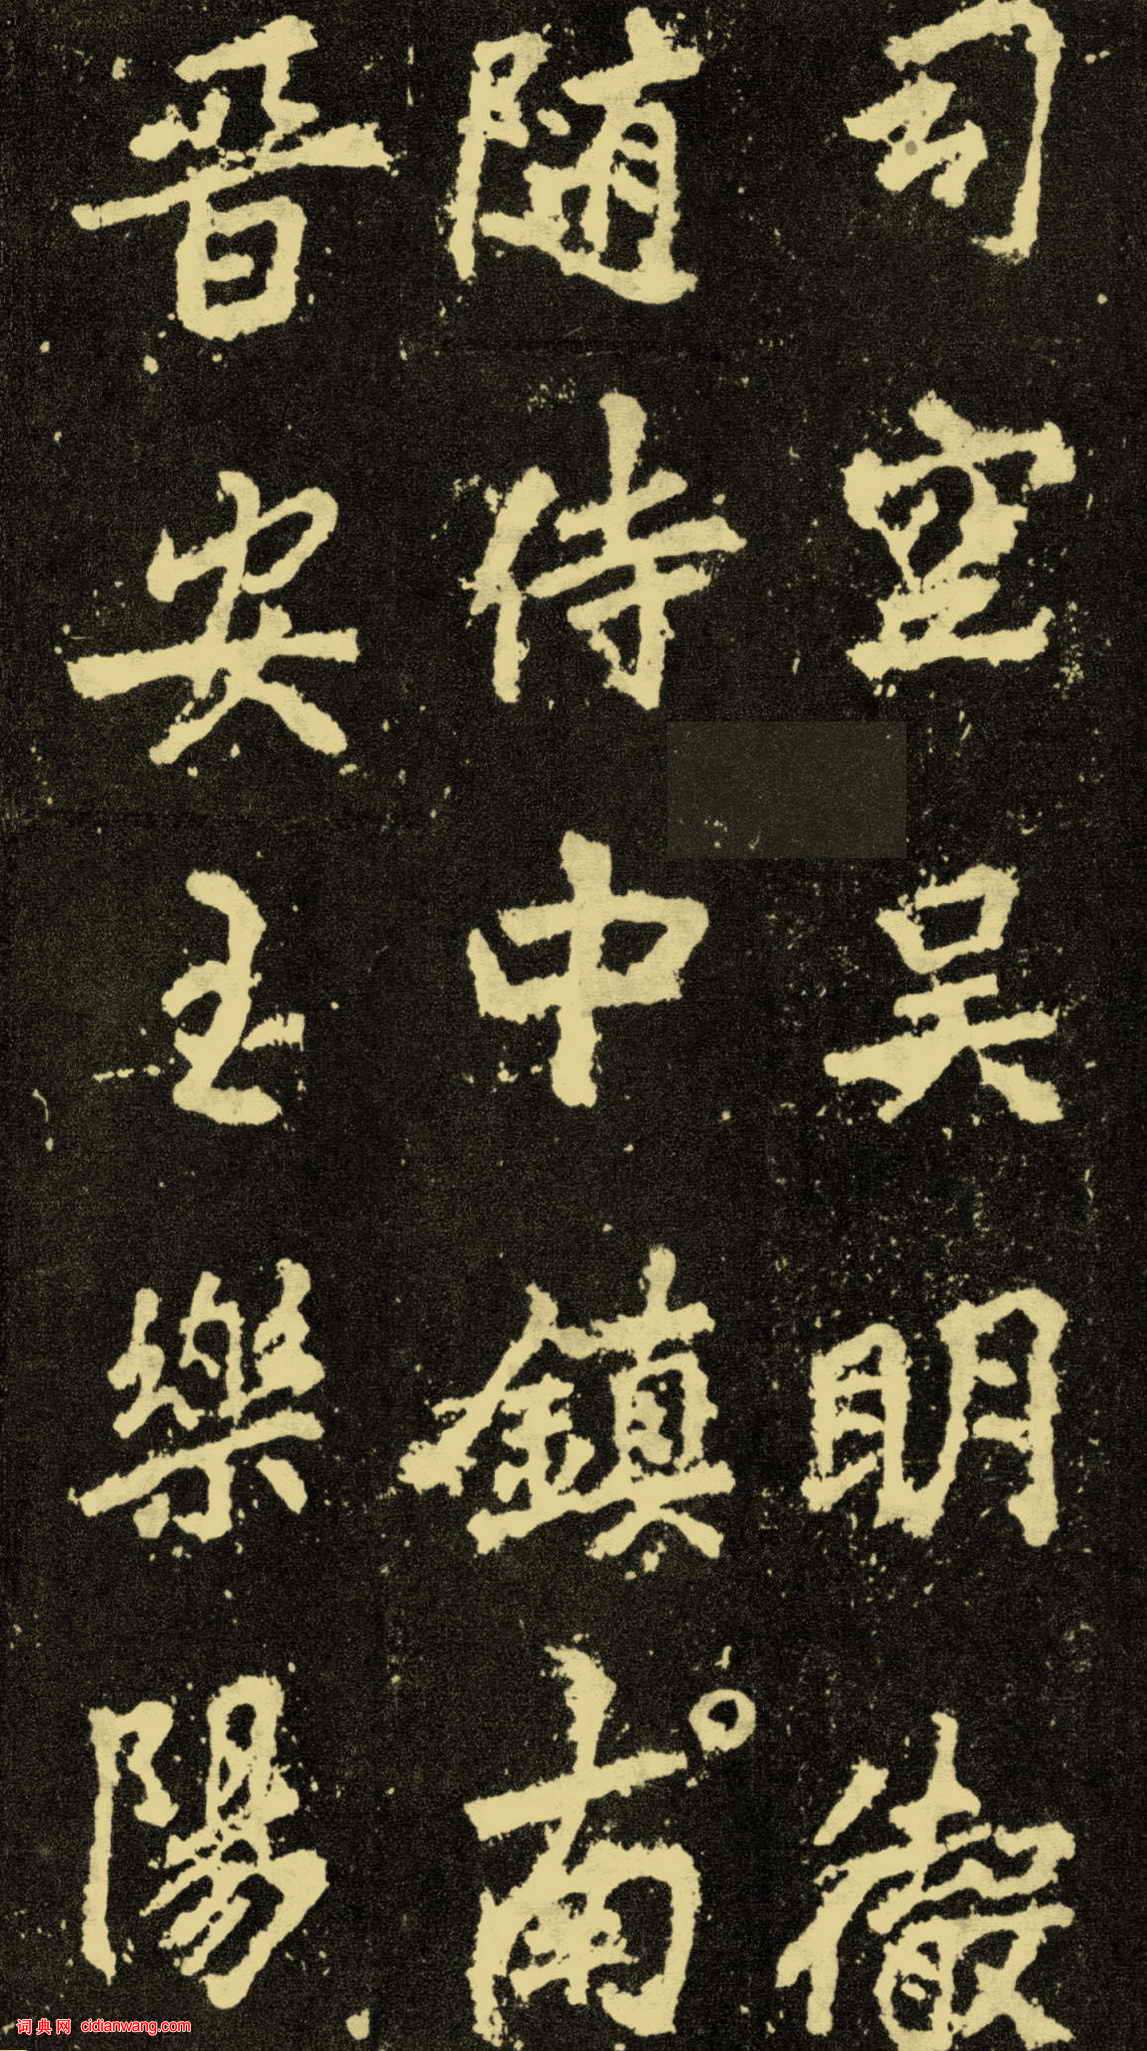 司空吴明徹
随侍中鎮南
晉安王樂陽
词典网 cidianwang.com